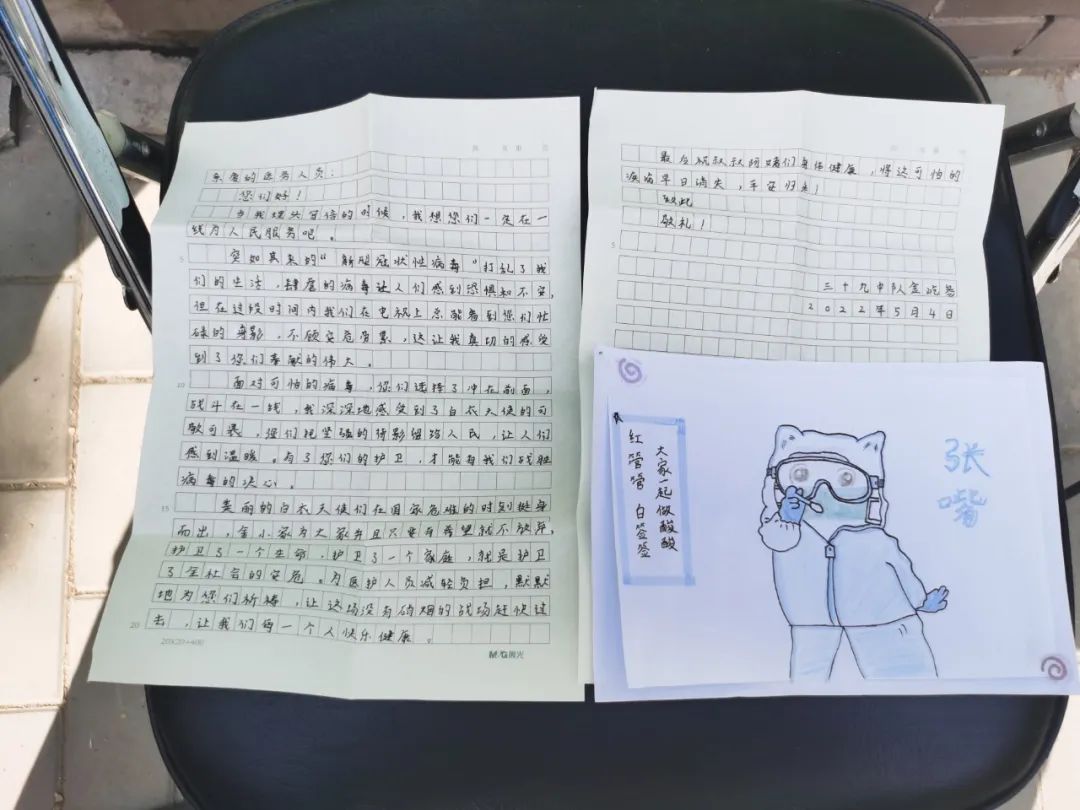 亲爱的医务人员：
您们好！
当我埋头写信的时候，我想您们一定在一
线为人民服务吧。
突如其来的“新型冠状性病毒”打乱了我
们的生活，肆虐的病毒让人们感到恐惧和不安，
但在这段时间内我们在电视上总能看到您们忙
碌的身影，不顾安危劳累，这让我真切的感受
到了您们奉献的伟大。
面对可怕的病毒，您们选择了冲在前面，
战斗在一线，我深深地感受到了白衣天使的可
敬可畏，您们把坚强的背影留给人民，让人们
感到温暖。有了您们的护卫，才能有我们战胜
病毒的决心。
美丽的白衣天使们在国家危难的时刻挺身
而出，舍小家为大家并且只要有希望就不放弃，
护卫了一个生命，护卫了一个家庭，就是护卫
了全社会的安危。为医护人员减轻负担，默默
地为您们祈祷，让这场没有硝烟的战场赶快过
去，让我们每一个人快乐健康。
20X20=400
晨光
最后祝叔叔阿姨们身体健康，将这可怕的
疾病早日消失，平安归来！
致此
敬礼！
三十九中队金
2022年5月4日
大家一起做酸酸
红管管 白签签
张嘴